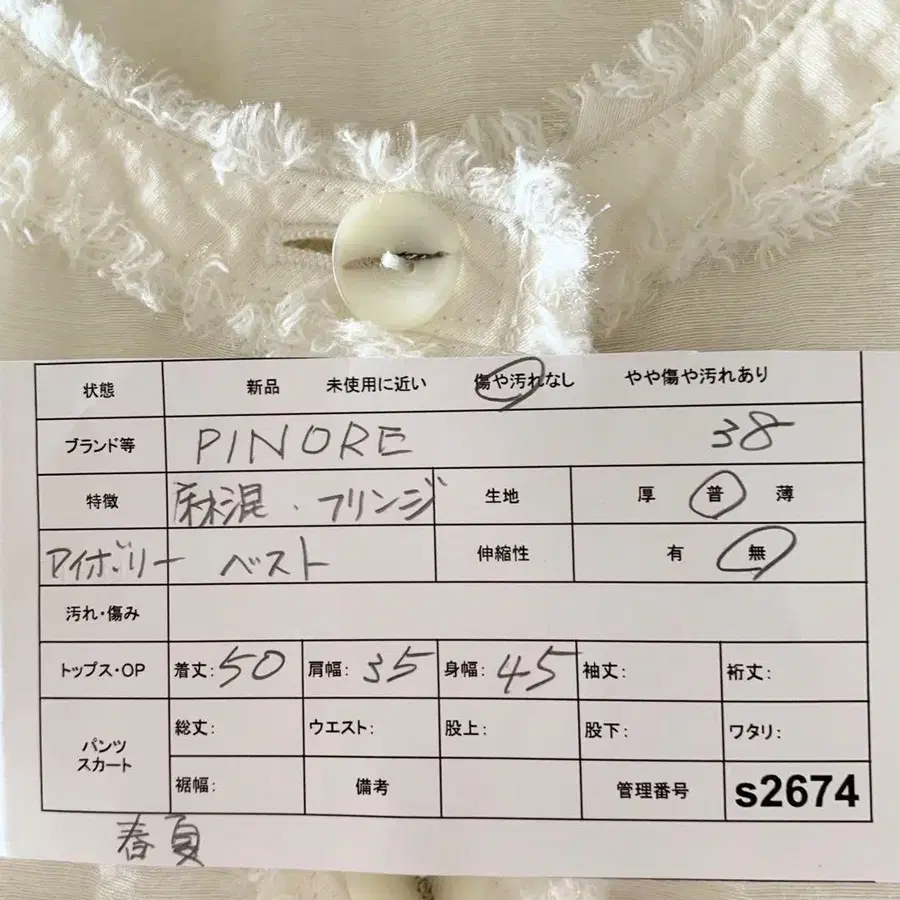 状態 新品 未使用に近い 傷や汚れなし やや傷や汚れあり
ブランド等 PINORE 38
特徴 麻混・フリンジ 生地 厚 普 薄
アイボリー ベスト 伸縮性 有 無
汚れ・傷み
トップス・OP 着丈:50 肩幅:35 身幅:45 袖丈: 裄丈:
パンツ スカート 総丈: ウエスト: 股上: 股下: ワタリ:
裾幅: 備考 管理番号 s2674
春夏